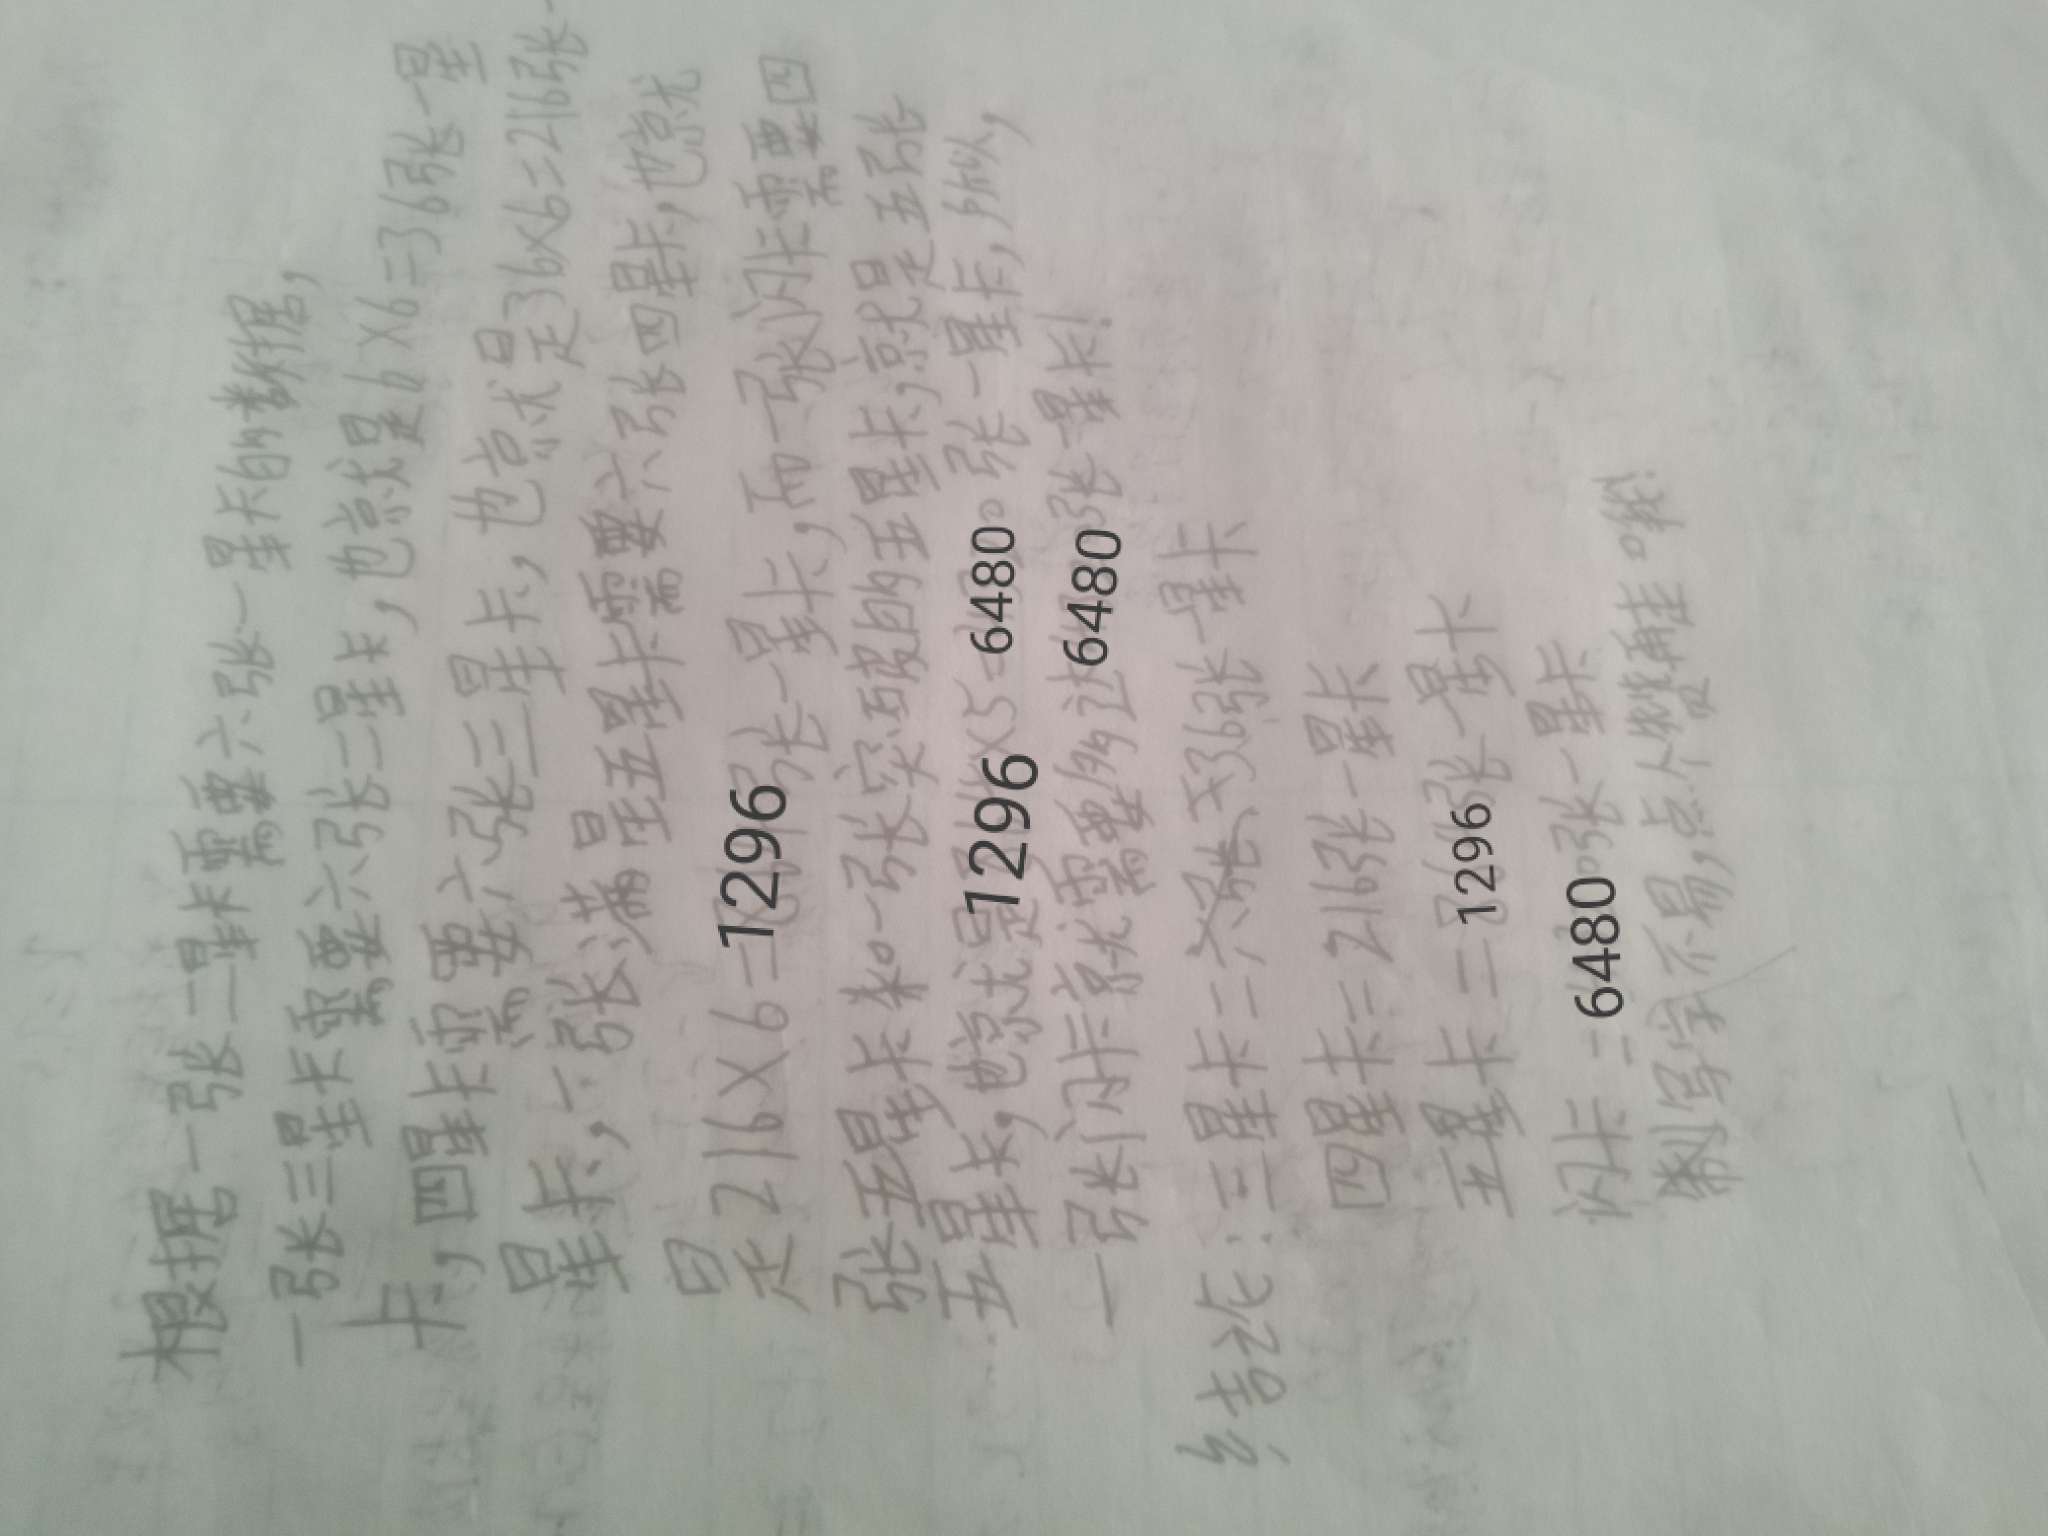 根据一张二星卡需要六张一星卡的数据，
一张三星卡需要六张二星卡，也就是6×6=36张一星
卡，四星卡需要六张三星卡，也就是36×6=216张一
星卡，一张满星五星卡需要六张四星卡，也就
是216×6=1296张一星卡，而一张闪卡需要四
张五星卡和一张突破的五星卡，就是五张
五星卡，也就是1296×5=6480张一星卡，所以，
一张闪卡就需要够这张6480张一星卡！
结论：三星卡=36张一星卡
四星卡=216张一星卡
五星卡=1296张一星卡
闪卡=6480张一星卡
制字不易，点个赞再走